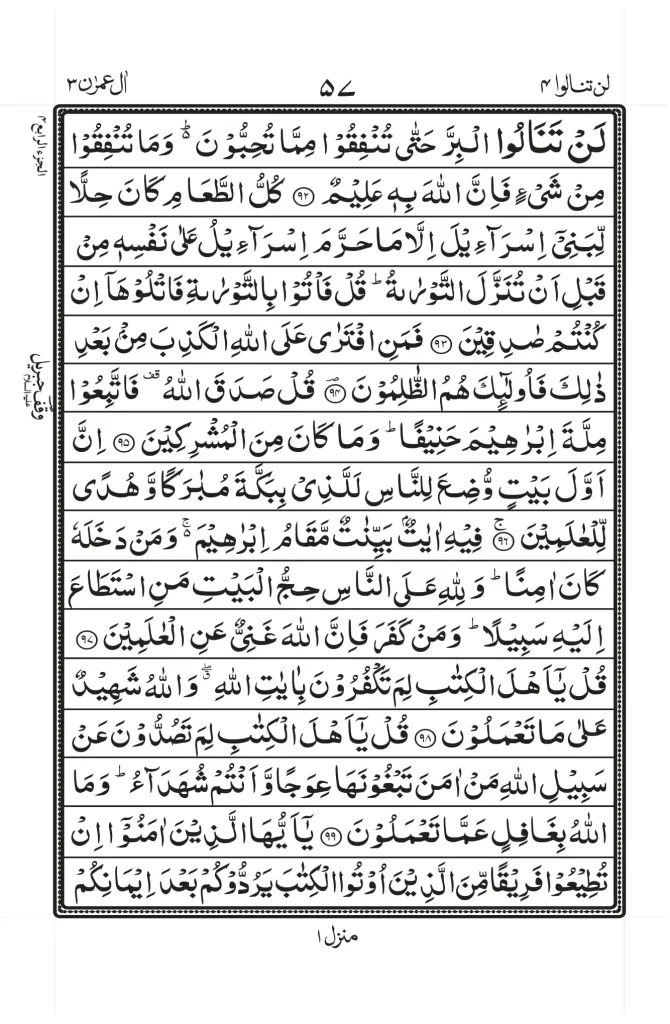 لن تنالوا ۴ ۵۷ اٰل عمرٰن ۳
الجزء الرابع ۴
لَنْ تَنَالُوا الْبِرَّ حَتّٰى تُنْفِقُوْا مِمَّا تُحِبُّوْنَ ۬ؕ وَمَا تُنْفِقُوْا
مِنْ شَیْءٍ فَاِنَّ اللّٰهَ بِهٖ عَلِیْمٌ ﴿۹۲﴾ كُلُّ الطَّعَامِ كَانَ حِلًّا
لِّبَنِیْۤ اِسْرَآءِیْلَ اِلَّا مَا حَرَّمَ اِسْرَآءِیْلُ عَلٰى نَفْسِهٖ مِنْ
قَبْلِ اَنْ تُنَزَّلَ التَّوْرٰىةُ ؕ قُلْ فَاْتُوْا بِالتَّوْرٰىةِ فَاتْلُوْهَاۤ اِنْ
كُنْتُمْ صٰدِقِیْنَ ﴿۹۳﴾ فَمَنِ افْتَرٰى عَلَى اللّٰهِ الْكَذِبَ مِنْۢ بَعْدِ
ذٰلِكَ فَاُولٰٓىِٕكَ هُمُ الظّٰلِمُوْنَ ﴿۹۴﴾ قُلْ صَدَقَ اللّٰهُ قف فَاتَّبِعُوْا
وقف جبریل علیہ السلام
مِلَّةَ اِبْرٰهِیْمَ حَنِیْفًا ؕ وَمَا كَانَ مِنَ الْمُشْرِكِیْنَ ﴿۹۵﴾ اِنَّ
اَوَّلَ بَیْتٍ وُّضِعَ لِلنَّاسِ لَلَّذِیْ بِبَكَّةَ مُبٰرَكًا وَّهُدًى
لِّلْعٰلَمِیْنَ ﴿۹۶﴾ۚ فِیْهِ اٰیٰتٌۢ بَیِّنٰتٌ مَّقَامُ اِبْرٰهِیْمَ ۬ۚ وَمَنْ دَخَلَهٗ
كَانَ اٰمِنًا ؕ وَلِلّٰهِ عَلَى النَّاسِ حِجُّ الْبَیْتِ مَنِ اسْتَطَاعَ
اِلَیْهِ سَبِیْلًا ؕ وَمَنْ كَفَرَ فَاِنَّ اللّٰهَ غَنِیٌّ عَنِ الْعٰلَمِیْنَ ﴿۹۷﴾
قُلْ یٰۤاَهْلَ الْكِتٰبِ لِمَ تَكْفُرُوْنَ بِاٰیٰتِ اللّٰهِ ۖۗ وَاللّٰهُ شَهِیْدٌ
عَلٰى مَا تَعْمَلُوْنَ ﴿۹۸﴾ قُلْ یٰۤاَهْلَ الْكِتٰبِ لِمَ تَصُدُّوْنَ عَنْ
سَبِیْلِ اللّٰهِ مَنْ اٰمَنَ تَبْغُوْنَهَا عِوَجًا وَّاَنْتُمْ شُهَدَآءُ ؕ وَمَا
اللّٰهُ بِغَافِلٍ عَمَّا تَعْمَلُوْنَ ﴿۹۹﴾ یٰۤاَیُّهَا الَّذِیْنَ اٰمَنُوْۤا اِنْ
تُطِیْعُوْا فَرِیْقًا مِّنَ الَّذِیْنَ اُوْتُوا الْكِتٰبَ یَرُدُّوْكُمْ بَعْدَ اِیْمَانِكُمْ
منزل ۱